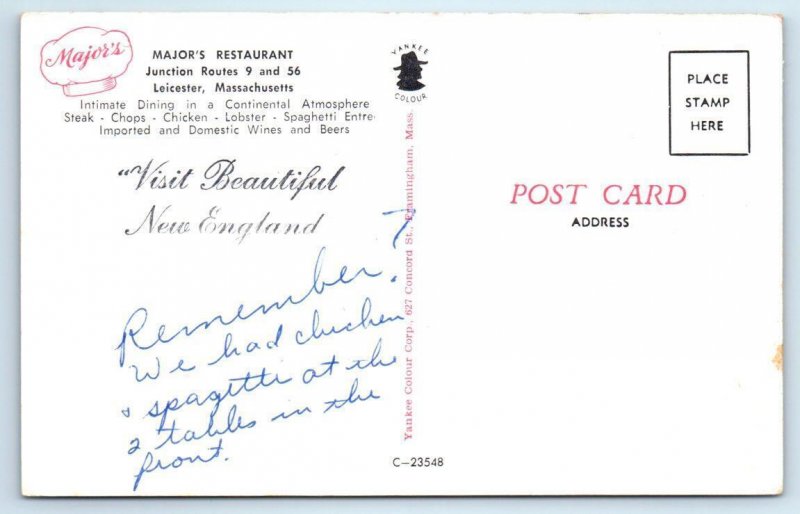 Major's
MAJOR'S RESTAURANT
Junction Routes 9 and 56
Leicester, Massachusetts
Intimate Dining in a Continental Atmosphere
Steak - Chops - Chicken - Lobster - Spaghetti Entre
Imported and Domestic Wines and Beers
"Visit Beautiful
New England
Remember?
We had chicken
& spagetti at the
2 tables in the
front.
YANKEE
COLOUR
Yankee Colour Corp., 627 Concord St., Framingham, Mass.
C-23548
PLACE
STAMP
HERE
POST CARD
ADDRESS